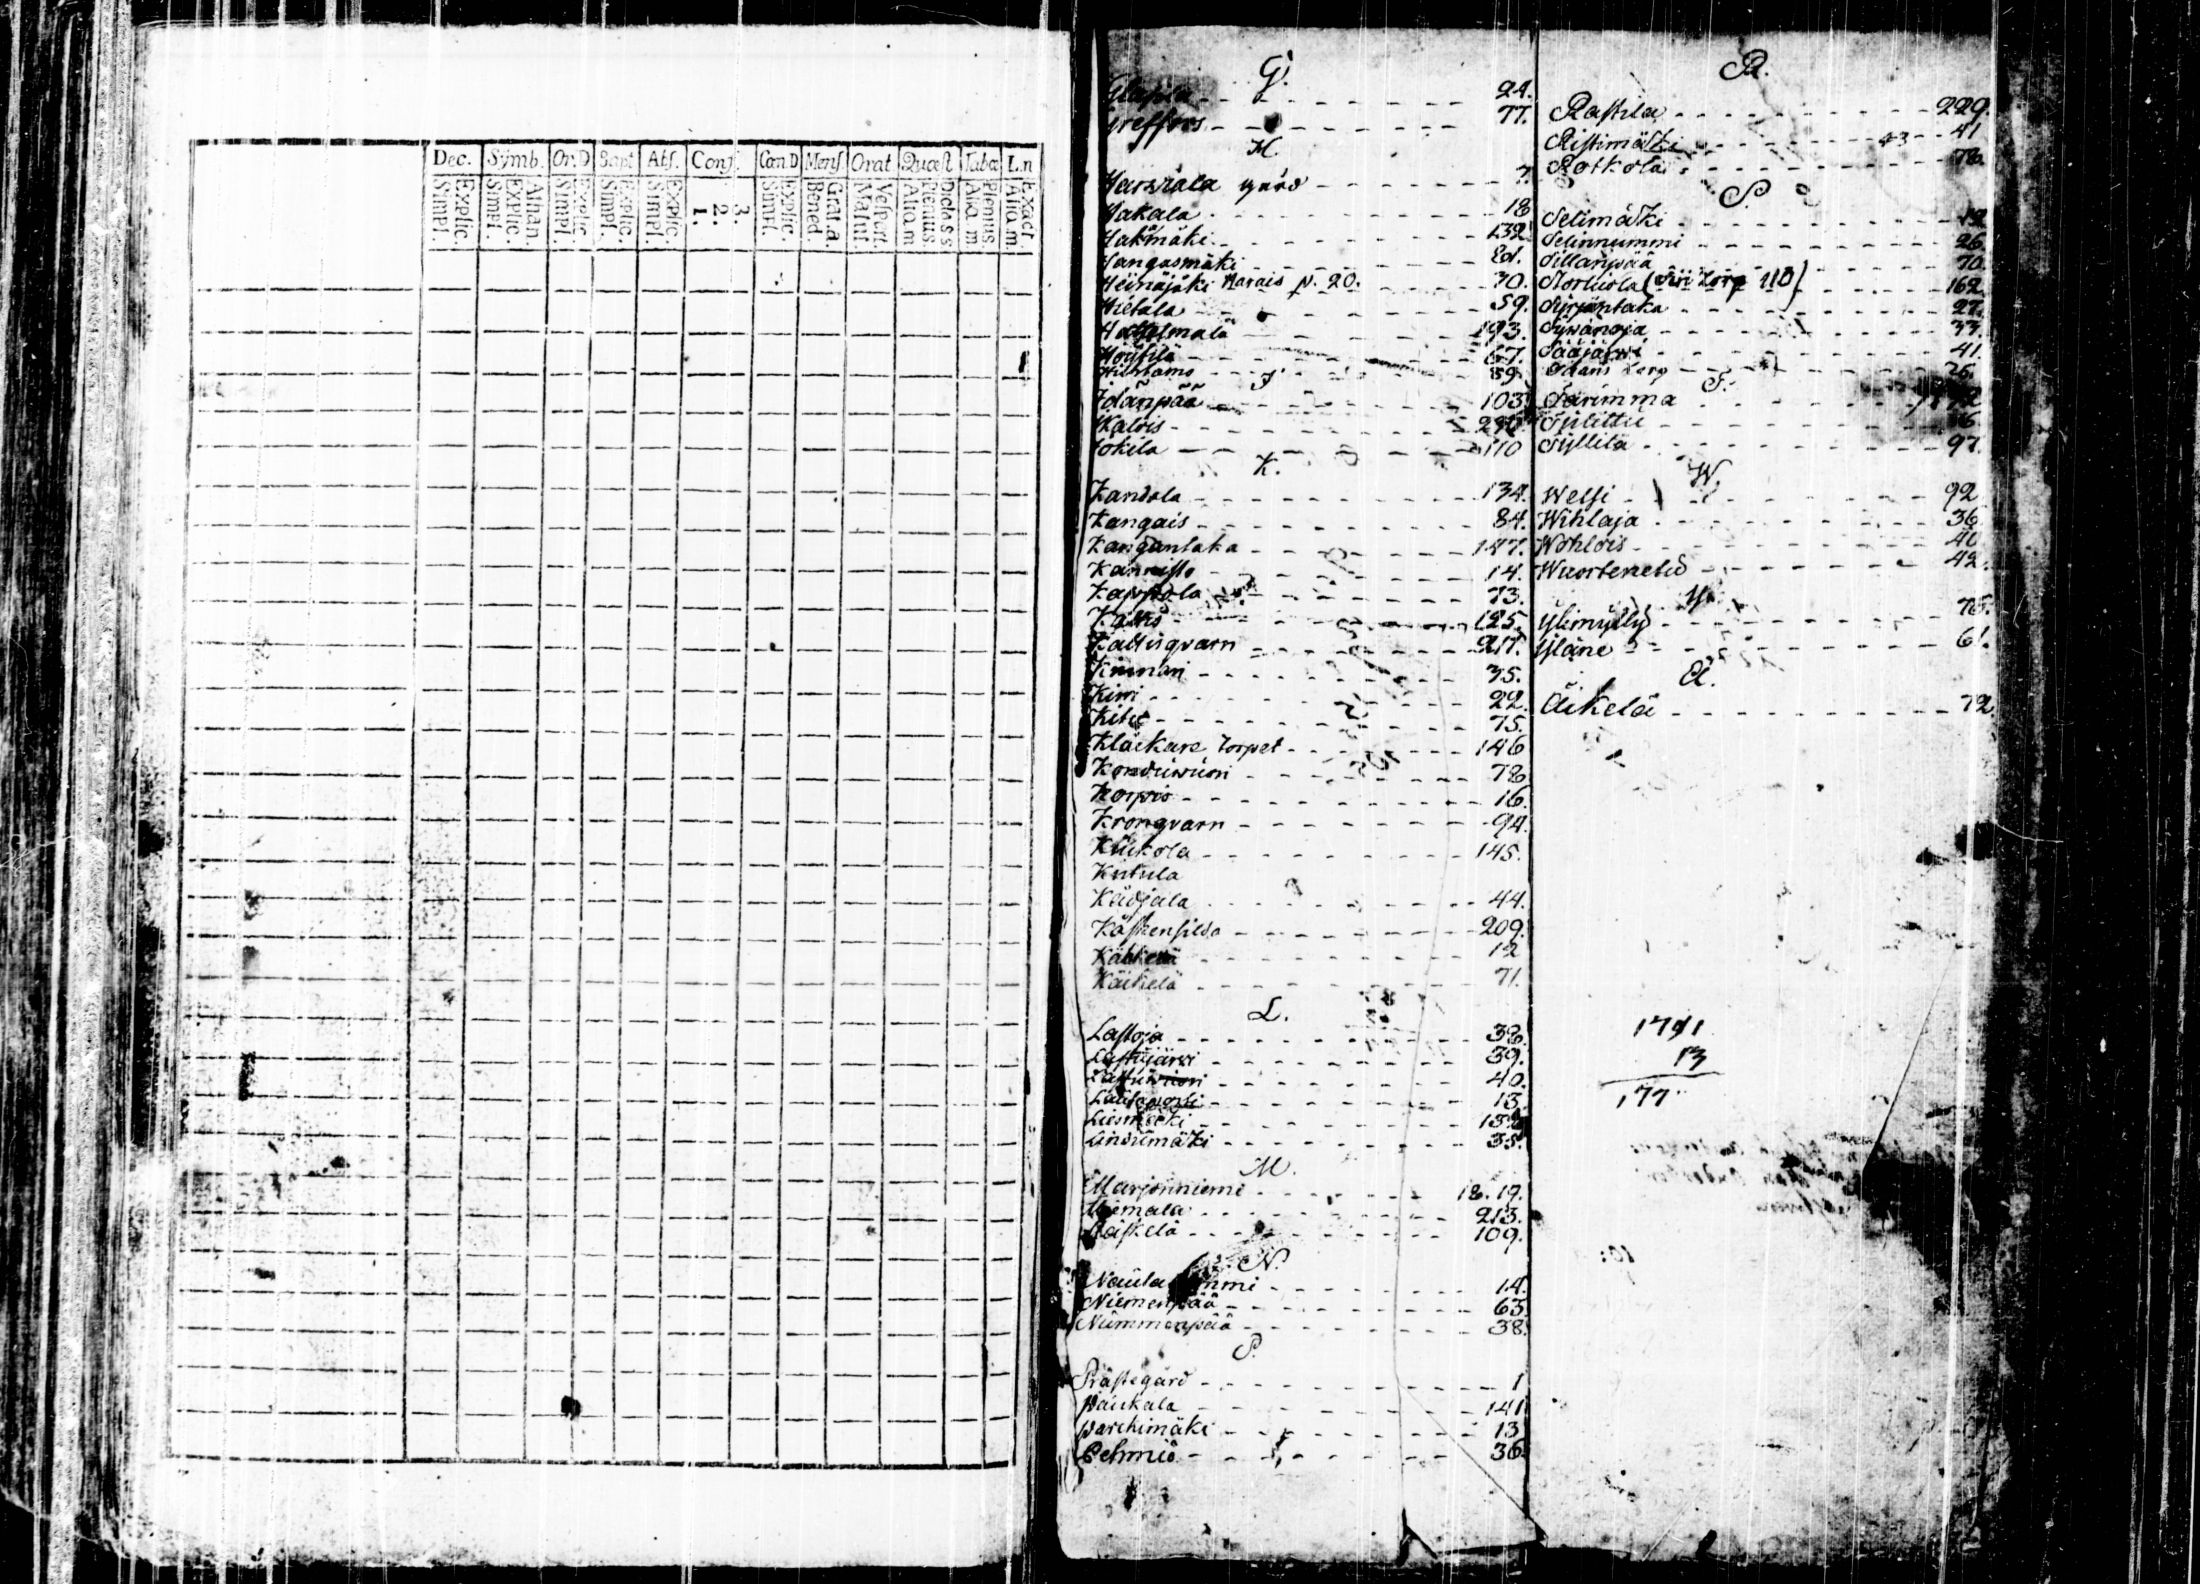 Dec. Symb. Or.D Bapt Abs. Conf. Cœn D Mens Orat Quæst Taba L.n
Explic. Simpl. Athan. Explic. Simpl. Explic. Simpl. Explic. Simpl. Explic. Simpl. 3. 2. 1. Explic. Simpl. Grat.a Bened. Vespert. Matut. Plenius Aliq.m Plenius Aliq.m Exact. Aliq.m
G.
24.
Greffors 77.
H.
gård 7.
Hakala 18
Hakomäki 132
Hangasmäki
Heinäjoki Karais p. 20. 30.
Hietala 59.
Hattelmala 193.
Höütilä 67.
89.
J
Idänpää 103
Kalois
Jokila 110
K.
Kandola 134.
Kangais 84.
Kangantaka 147.
Kannisto 14.
Kappola 73.
Kattis 125.
Kattisqvarn 217.
Kinnari 35.
Kirri 22.
75.
Kläckare Torpet 146
Konduwuori 78
Korpis 16.
Kronqvarn 94.
Kükola 145.
Kutula
Kädjala 44.
Käskensilda 209.
12
Käikelä 71.
L.
Lastoja 38.
Lastujärwi 39.
Lastuwuori 40.
13.
Liesmäki
Lindumäki 35.
M.
Marjonniemi 18. 19.
213.
Mäskelä 109.
N.
14.
Niemenpää 63
Nummenpää 38.
P.
Prästegård 1
Paukala 141
Parehimäki 13
Pehmiö 36
R.
Rastila 229.
Ristimäki 43 41
Rotkola 78.
S.
Selimäki
Selinnummi 26
Sillanpää 70.
162
Syrjäntaka 27.
Sywänoja 33.
Sääjärwi 41.
Torp 26.
T.
Tarimma
Tulittu
Tyllilä 97.
W.
Wessi 92
Wihlaja 36
Wohlois 40
Wuortenetud 42.
Y.
Ylimylly 75.
Yläne 61.
Ä.
Äikelä 72
17
13
177